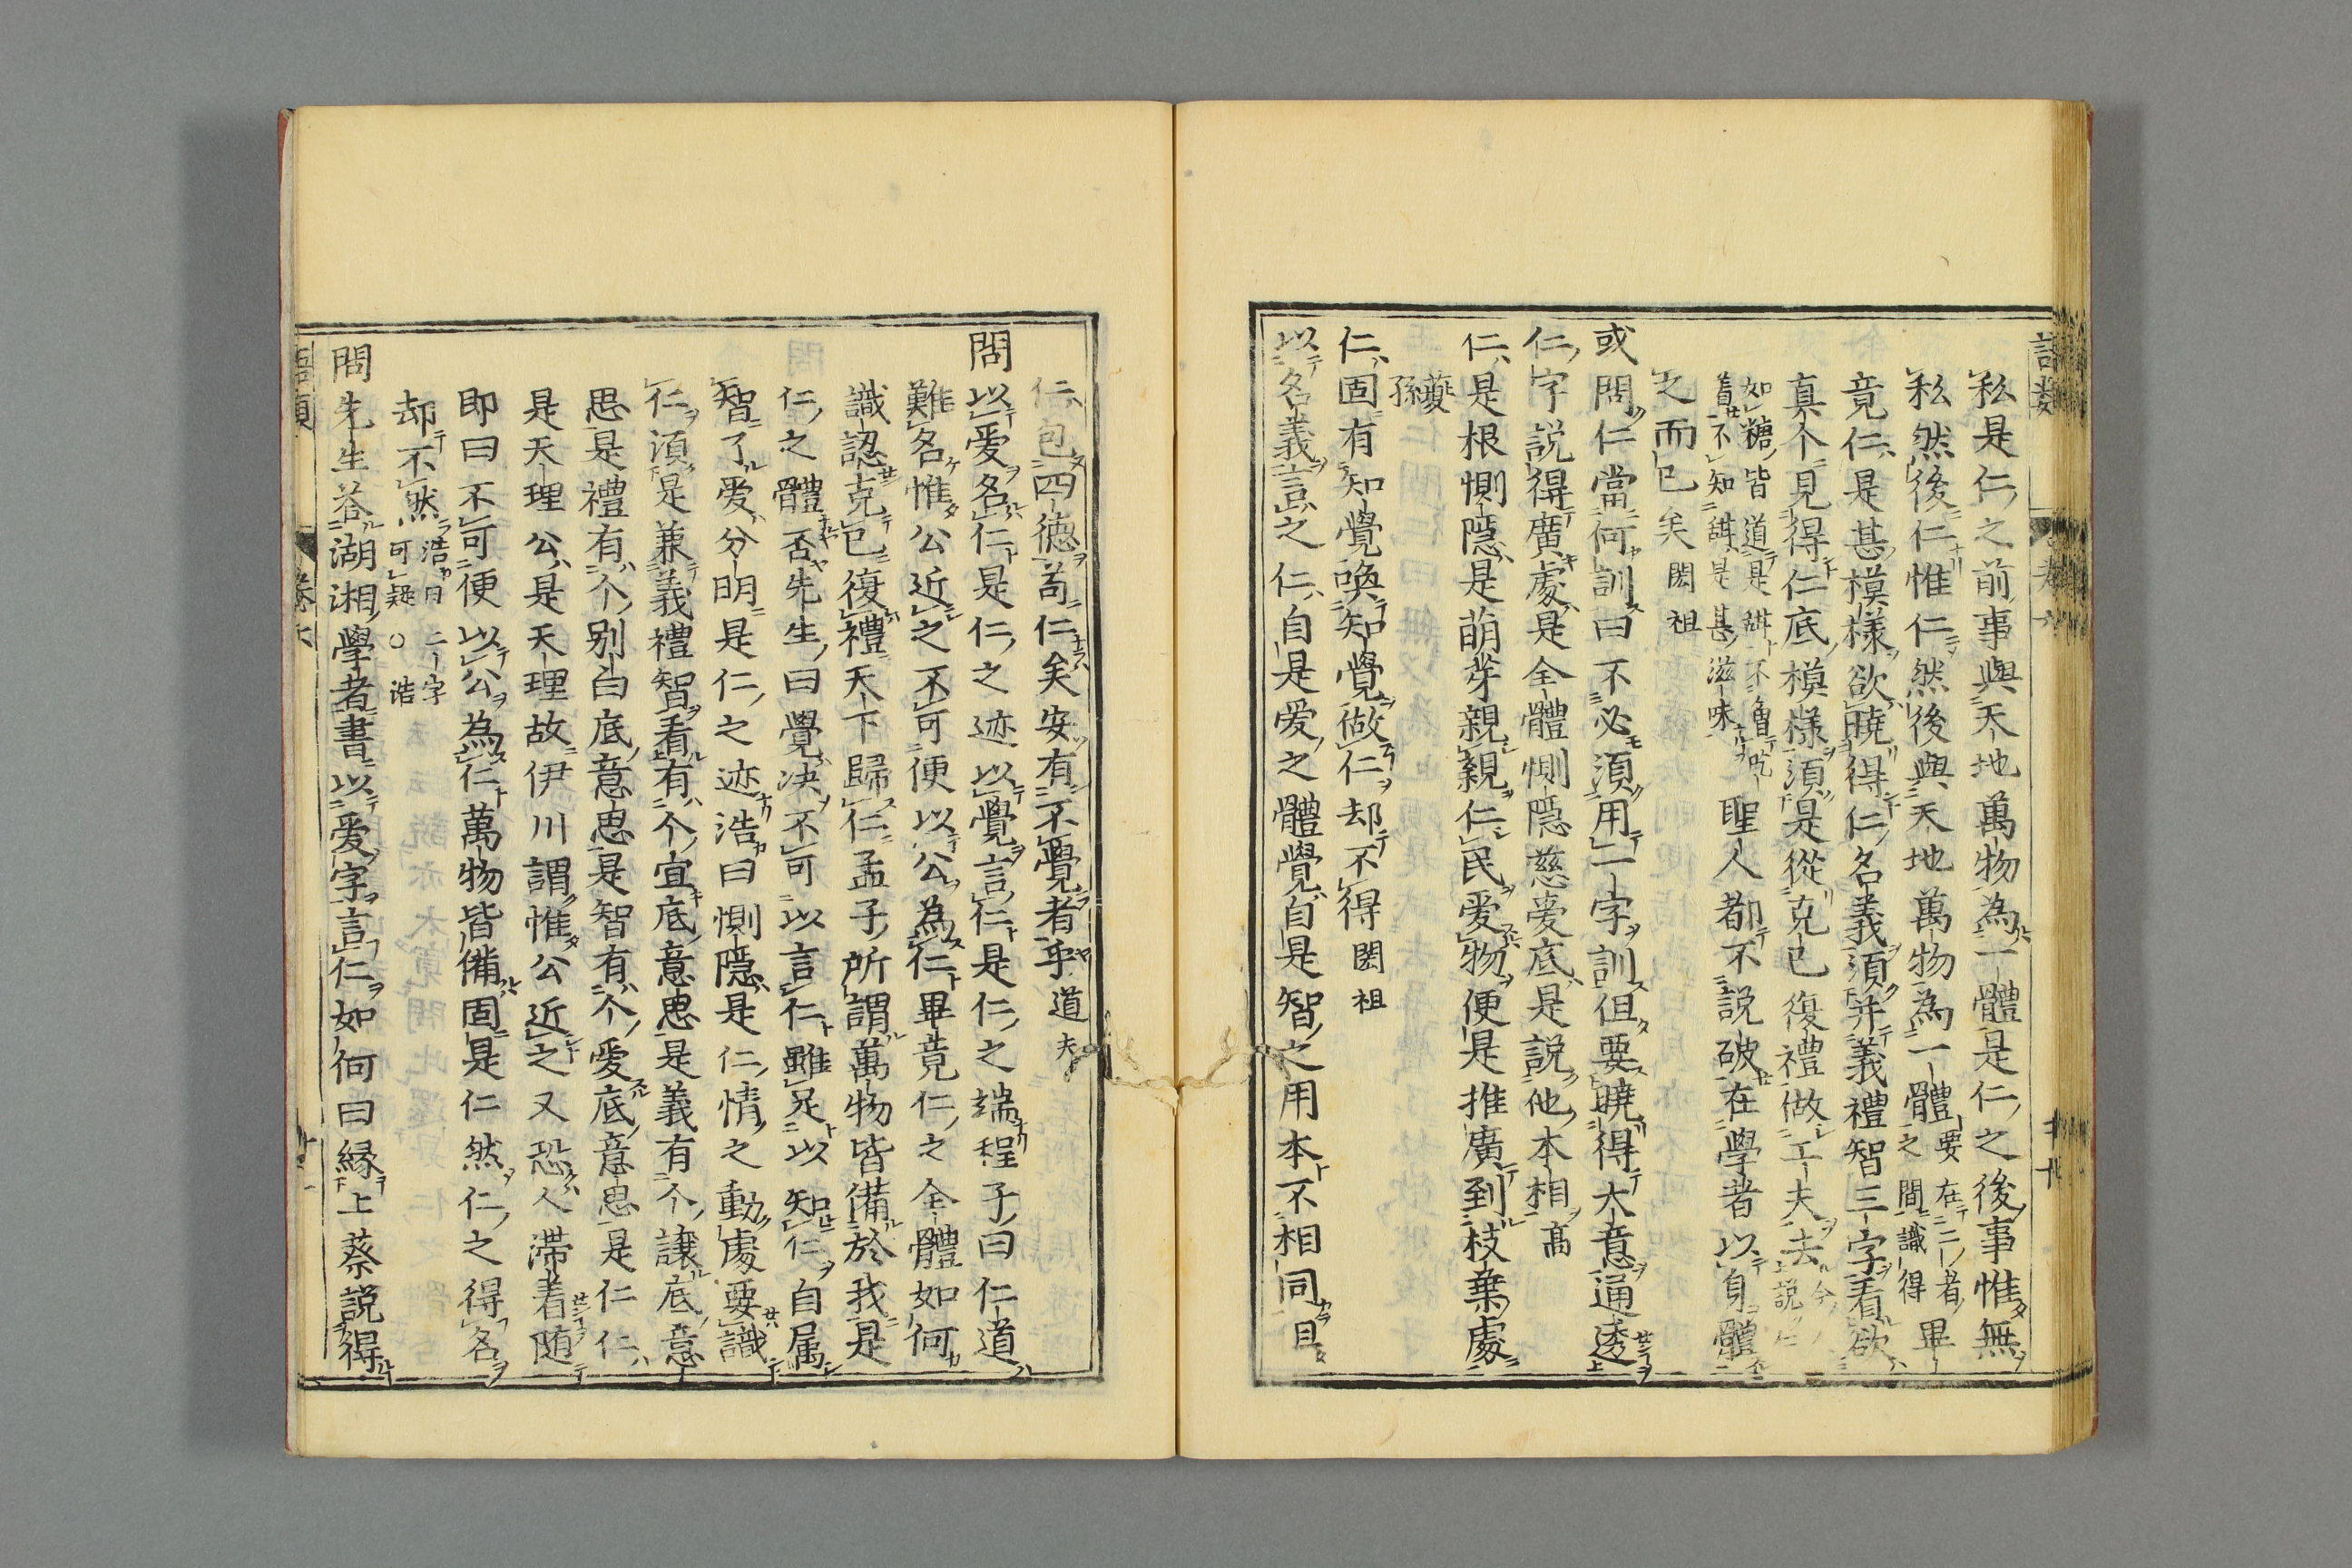 私是仁之前事與天地萬物為一體是仁之後事惟無
私然後仁惟仁然後與天地萬物為一體要在二者之間識得畢
竟仁是甚模樣欲曉得仁名義須并義禮智三字看欲
真个見得仁底模樣須是從克己復禮做工夫去今人說仁
如糖皆道是甜不曾喫著不知甜是甚滋味聖人都不說破在學者以身體
之而已矣閎祖
或問仁當何訓曰不必須用一字訓但要曉得大意通透
仁字說得廣處是全體惻隱慈愛底是說他本相高
仁是根惻隱是萌芽親親仁民愛物便是推廣到枝葉處
夔孫
仁固有知覺喚知覺做仁却不得閎祖
以名義言之仁自是愛之體覺自是智之用本不相同但
仁包四德苟仁矣安有不覺者乎道夫
問以愛名仁是仁之迹以覺言仁是仁之端程子曰仁道
難名惟公近之不可便以公為仁畢竟仁之全體如何
識認克己復禮天下歸仁孟子所謂萬物皆備於我是
仁之體否先生曰覺决不可以言仁雖足以知仁自属
智了愛分明是仁之迹浩曰惻隱是仁情之動處要識
仁須是兼義禮智看有个宜底意思是義有个讓底意
思是禮有个别白底意思是智有个愛底意思是仁仁
是天理公是天理故伊川謂惟公近之又恐人滯着随
即曰不可便以公為仁萬物皆備固是仁然仁之得名
却不然浩曰二字可疑○浩
問先生答湖湘學者書以愛字言仁如何曰緣上蔡說得